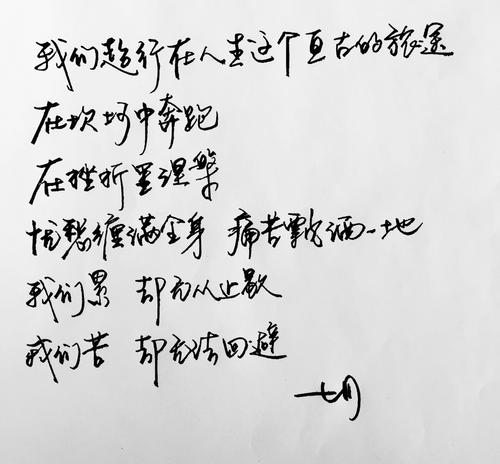 我们趋行在人生这个亘古的旅途
在坎坷中奔跑
在挫折里涅槃
忧愁缠满全身 痛苦飘洒一地
我们累 却无从止歇
我们苦 却无法回避
七月